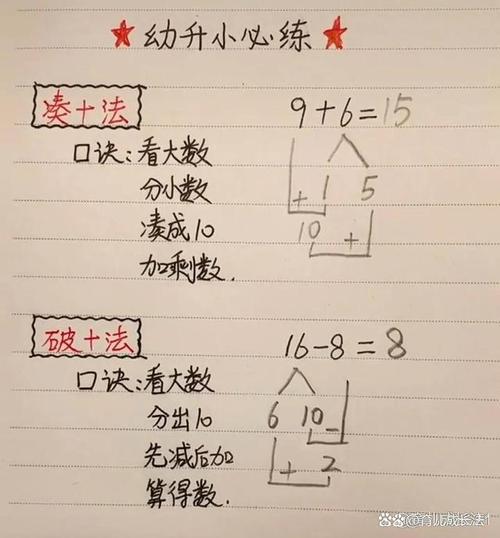 ★幼升小必练★
凑十法
9+6=15
口诀:看大数
分小数
凑成10
加剩数.
+ 1 5
10 +
破十法
16-8=8
口诀:看大数
分出10
先减后加
算得数.
6 10 -
+ 2
@育儿成长法1